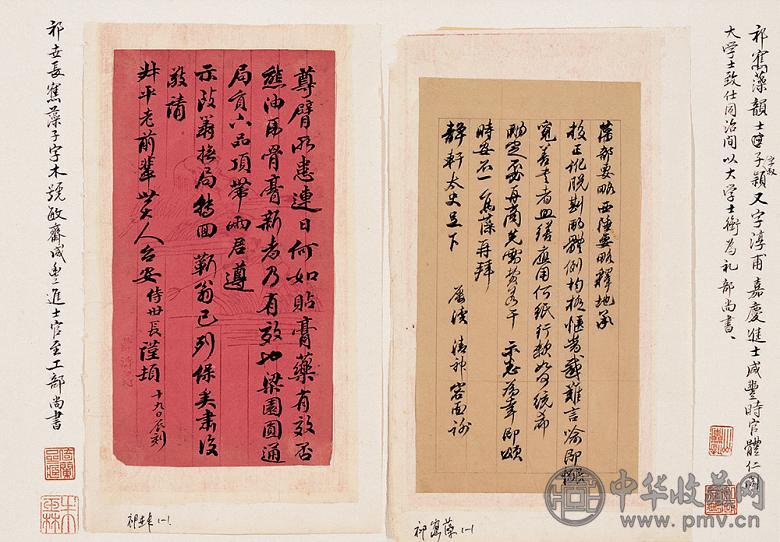 祁寯藻韻士子字叔穎又字淳甫嘉慶進士咸豐時官體仁閣
大学士致仕同治間以大学士銜為礼部尚書、
藩部要略西陲要略釋地承
校正訛脱斟酌體例均極惬當感難言喻即
覓善書者
應用何紙行款
統希
酌定
再商先需費若干 示悉為幸即頌
時安不一 寯藻再拜
靜軒太史足下
容面谢
尊臂所患連日何如貼膏藥有效否
熊油虎骨膏新者乃有效也梁園圓通
局頁六品頂帶
遵
示致
局
翁已列保矣肅復
敬請
老前輩世大人台安 侍世長謹頓
十九日辰刻
祁世長寯藻子字
號敏齋咸豐進士官至工部尚書
祁世長 1-1
祁寯藻 1-1
中华收藏网
www.pmv.cn